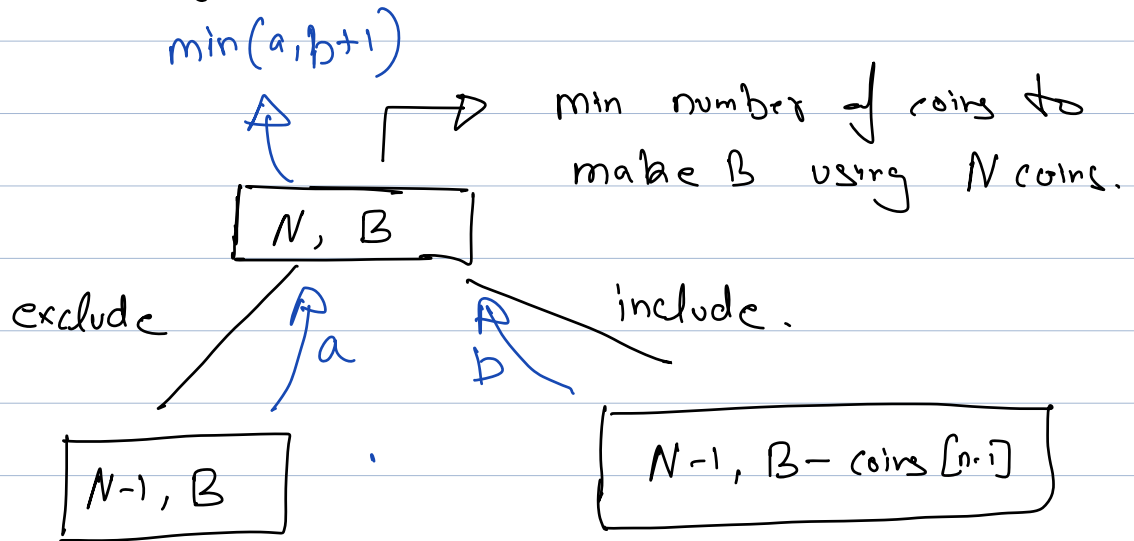 min(a, b+1)
min number of coins to
make B using N coins.
N, B
exclude
include.
a
b
N-1, B
N-1, B- coins [n-1]